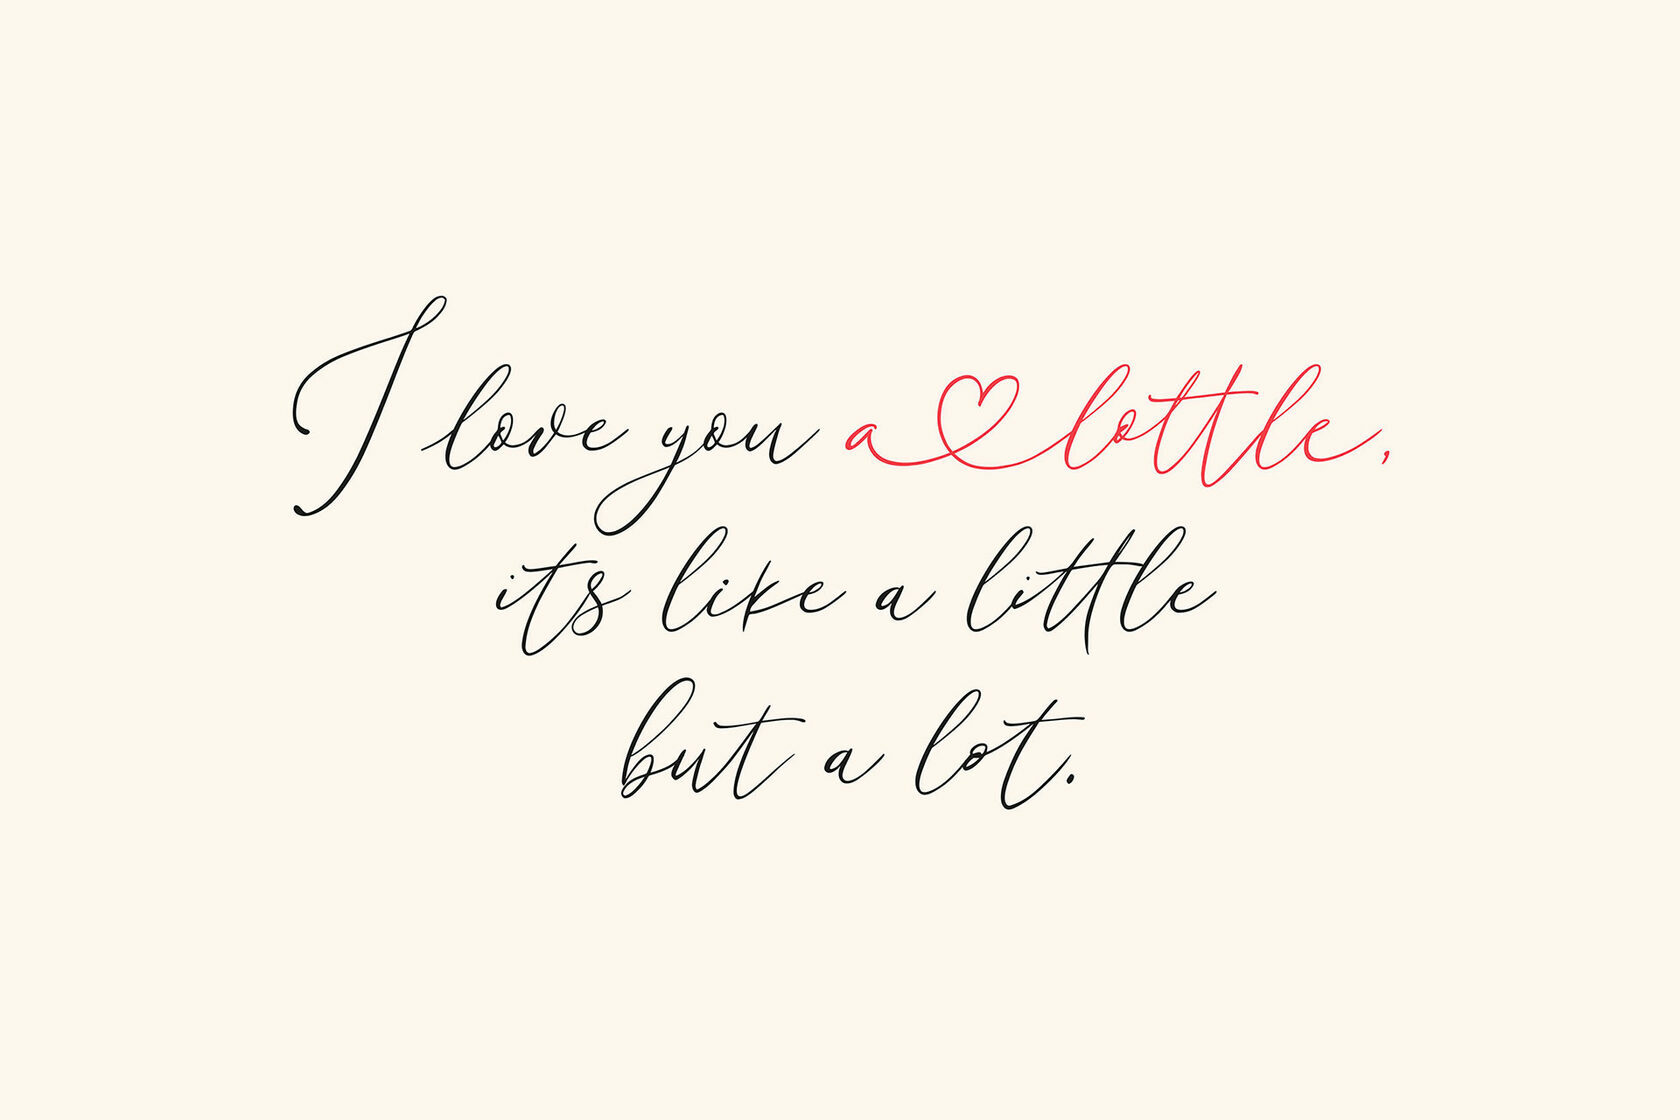 I love you a lottle,
its like a little
but a lot.